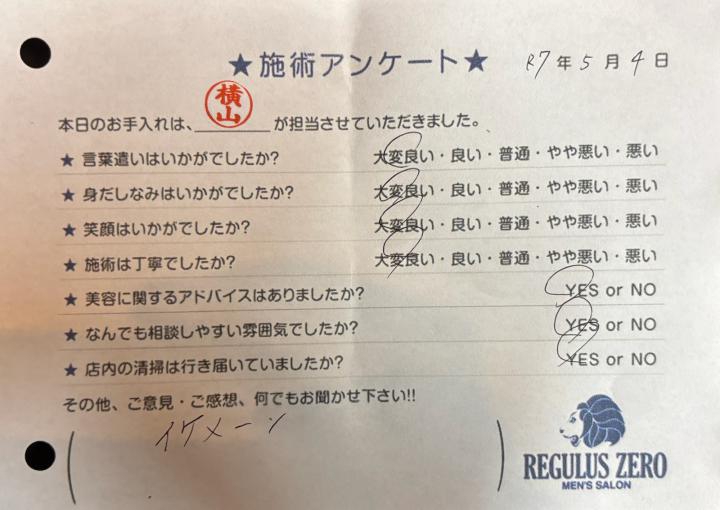 ★施術アンケート★ R7年5月4日
本日のお手入れは、横山が担当させていただきました。
★ 言葉遣いはいかがでしたか? 大変良い・良い・普通・やや悪い・悪い
★ 身だしなみはいかがでしたか? 大変良い・良い・普通・やや悪い・悪い
★ 笑顔はいかがでしたか? 大変良い・良い・普通・やや悪い・悪い
★ 施術は丁寧でしたか? 大変良い・良い・普通・やや悪い・悪い
★ 美容に関するアドバイスはありましたか? YES or NO
★ なんでも相談しやすい雰囲気でしたか? YES or NO
★ 店内の清掃は行き届いていましたか? YES or NO
その他、ご意見・ご感想、何でもお聞かせ下さい!!
イケメーン
REGULUS ZERO
MEN'S SALON